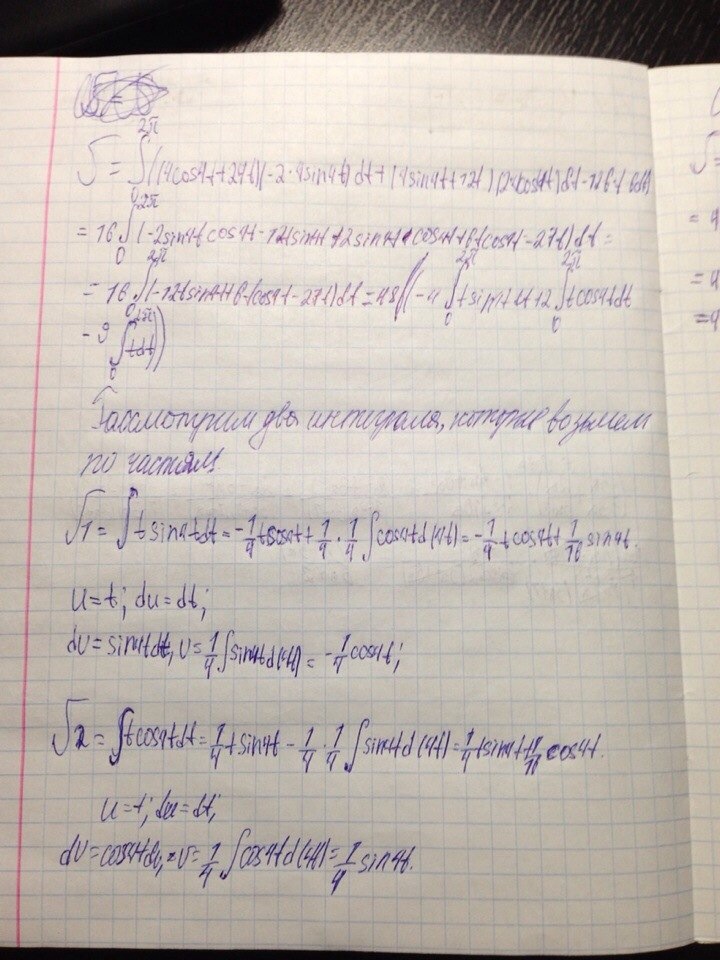 2π
J = ∫ ((4cos4t+24t)(-2·4sin4t)dt+(4sin4t+12t)(24cos4t)dt-12t·t 6dt)
0 2π
= 16 ∫ (-2sin4t cos4t-12tsin4t+2sin4t cos4t+6tcos4t-27t)dt =
0 2π 2π 2π
= 16 ∫ (-12tsin4t+6tcos4t-27t)dt = 48 ((-4 ∫ tsin4tdt+2 ∫ tcos4tdt
0 2π 0 0
- 9 ∫ tdt))
0
Рассмотрим два интеграла, которые возьмем
по частям
J1 = ∫ t sin4tdt = -1/4 tcos4t + 1/4 · 1/4 ∫ cos4td(4t) = -1/4 t cos4t + 1/16 sin4t.
u=t; du=dt;
dv=sin4tdt, v= 1/4 ∫ sin4td(4t) = -1/4 cos4t;
J2 = ∫ tcos4tdt = 1/4 tsin4t - 1/4 · 1/4 ∫ sin4td(4t) = 1/4 tsin4t + 1/16 cos4t.
u=t; du=dt;
dv=cos4tdt, v= 1/4 ∫ cos4td(4t) = 1/4 sin4t.